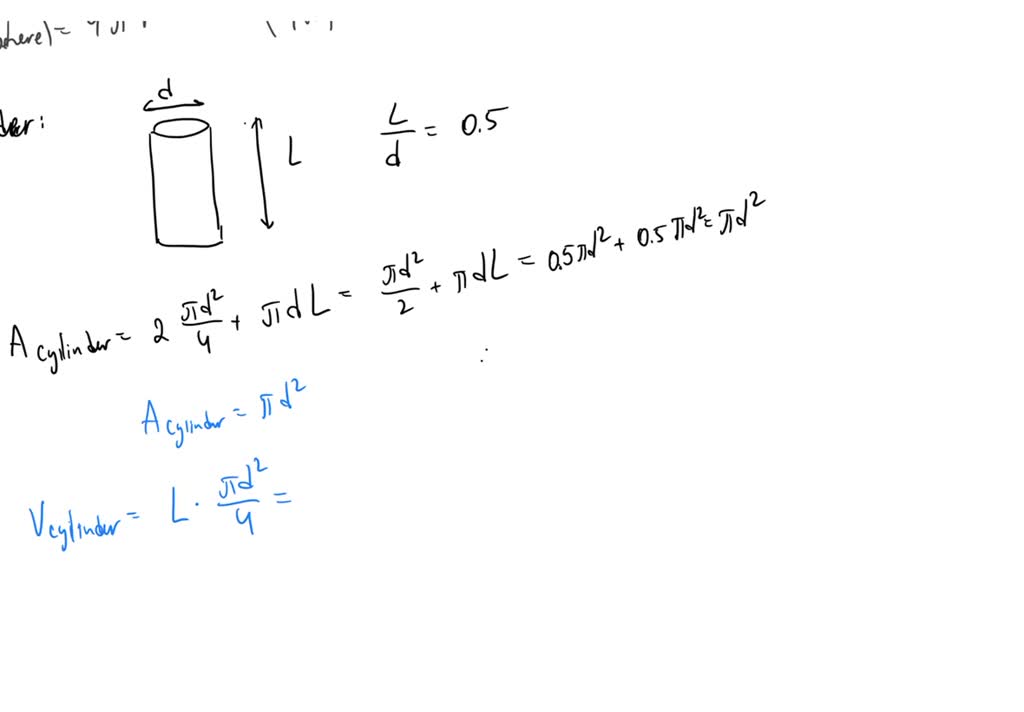 d
L
L/d = 0.5
A cylinder = 2 πd²/4 + πdL = πd²/2 + πdL = 0.5πd² + 0.5πd² = πd²
A cylinder = πd²
V cylinder = L · πd²/4 =